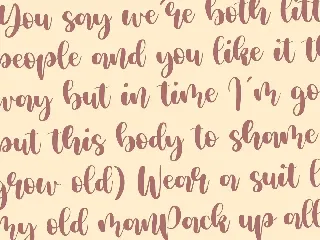 You say we're both litt
people and you like it th
way but in time I'm go
put this body to shame
grow old) Wear a suit l
my old manPack up all